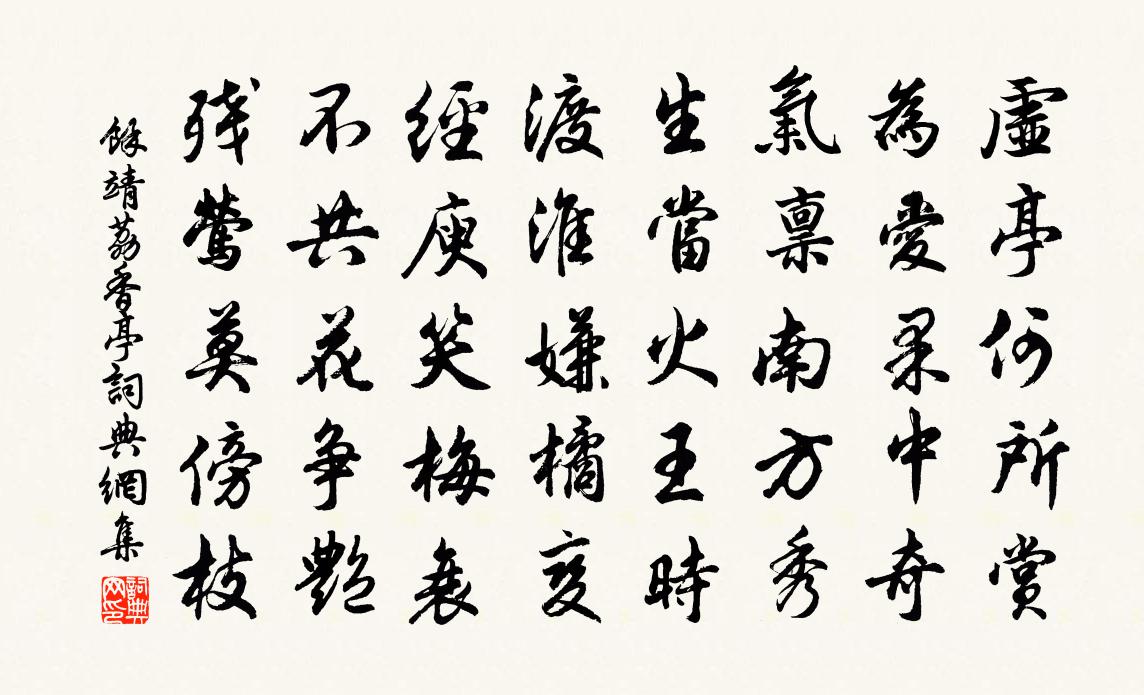 虛亭何所賞
為愛果中奇
氣禀南方秀
生當火王時
渡淮嫌橘變
經庾笑梅衰
不共花爭艷
残鶯莫傍枝
餘靖荔香亭詞典網集
詞典網印